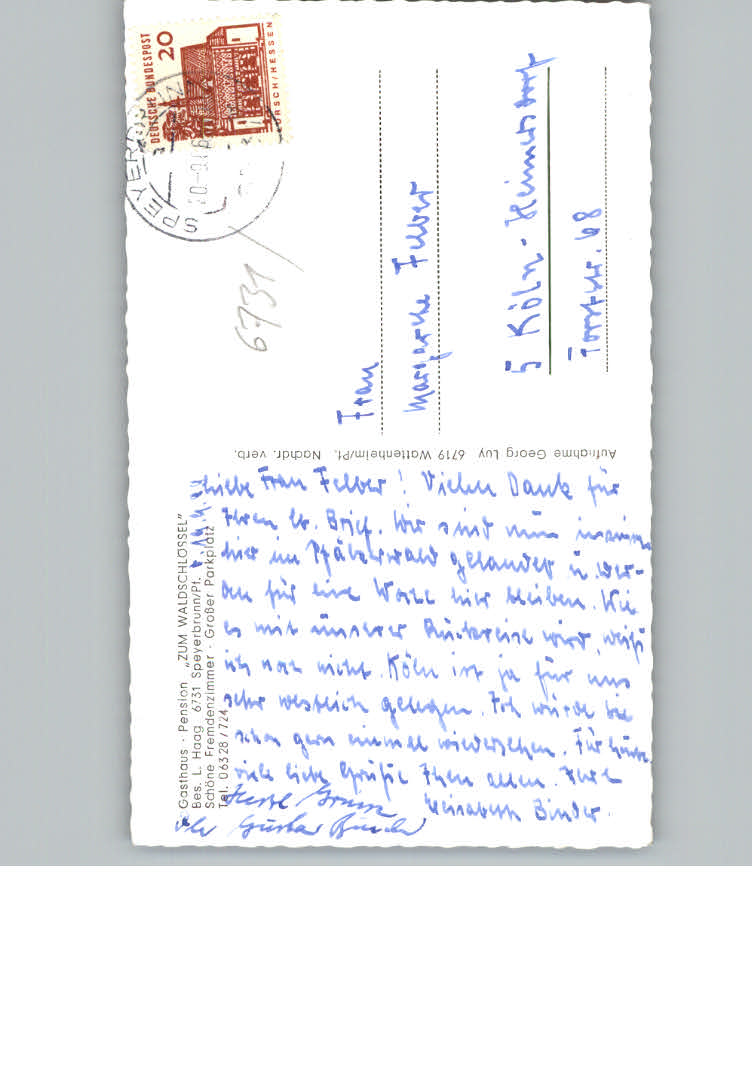 Gasthaus · Pension „ZUM WALDSCHLÖSSEL"
Bes. L. Haag 6731 Speyerbrunn/Pf.
Schöne Fremdenzimmer · Großer Parkplatz
Tel. 06328/724
Liebe Frau Felber! Vielen Dank für
Ihren lb. Brief. Wir sind nun
hier im Pfälzerwald gelandet u. wer-
den für eine Woche hier bleiben. Wie
es mit unserer Rückreise wird, weiß
ich noch nicht. Köln ist ja für uns
sehr westlich gelegen. Ich würde Sie
schon gern einmal wiedersehen. Für heute
viele liebe Grüße Ihnen allen. Ihre
Elisabeth Binder.
Herzl. Gruss
Ihr Gustav Binder
Aufnahme Georg Luy 6719 Wattenheim/Pf. Nachdr. verb.
DEUTSCHE BUNDESPOST
20
LORSCH/HESSEN
6731
Frau
Margarethe Felber
5 Köln-Heimersdorf
68